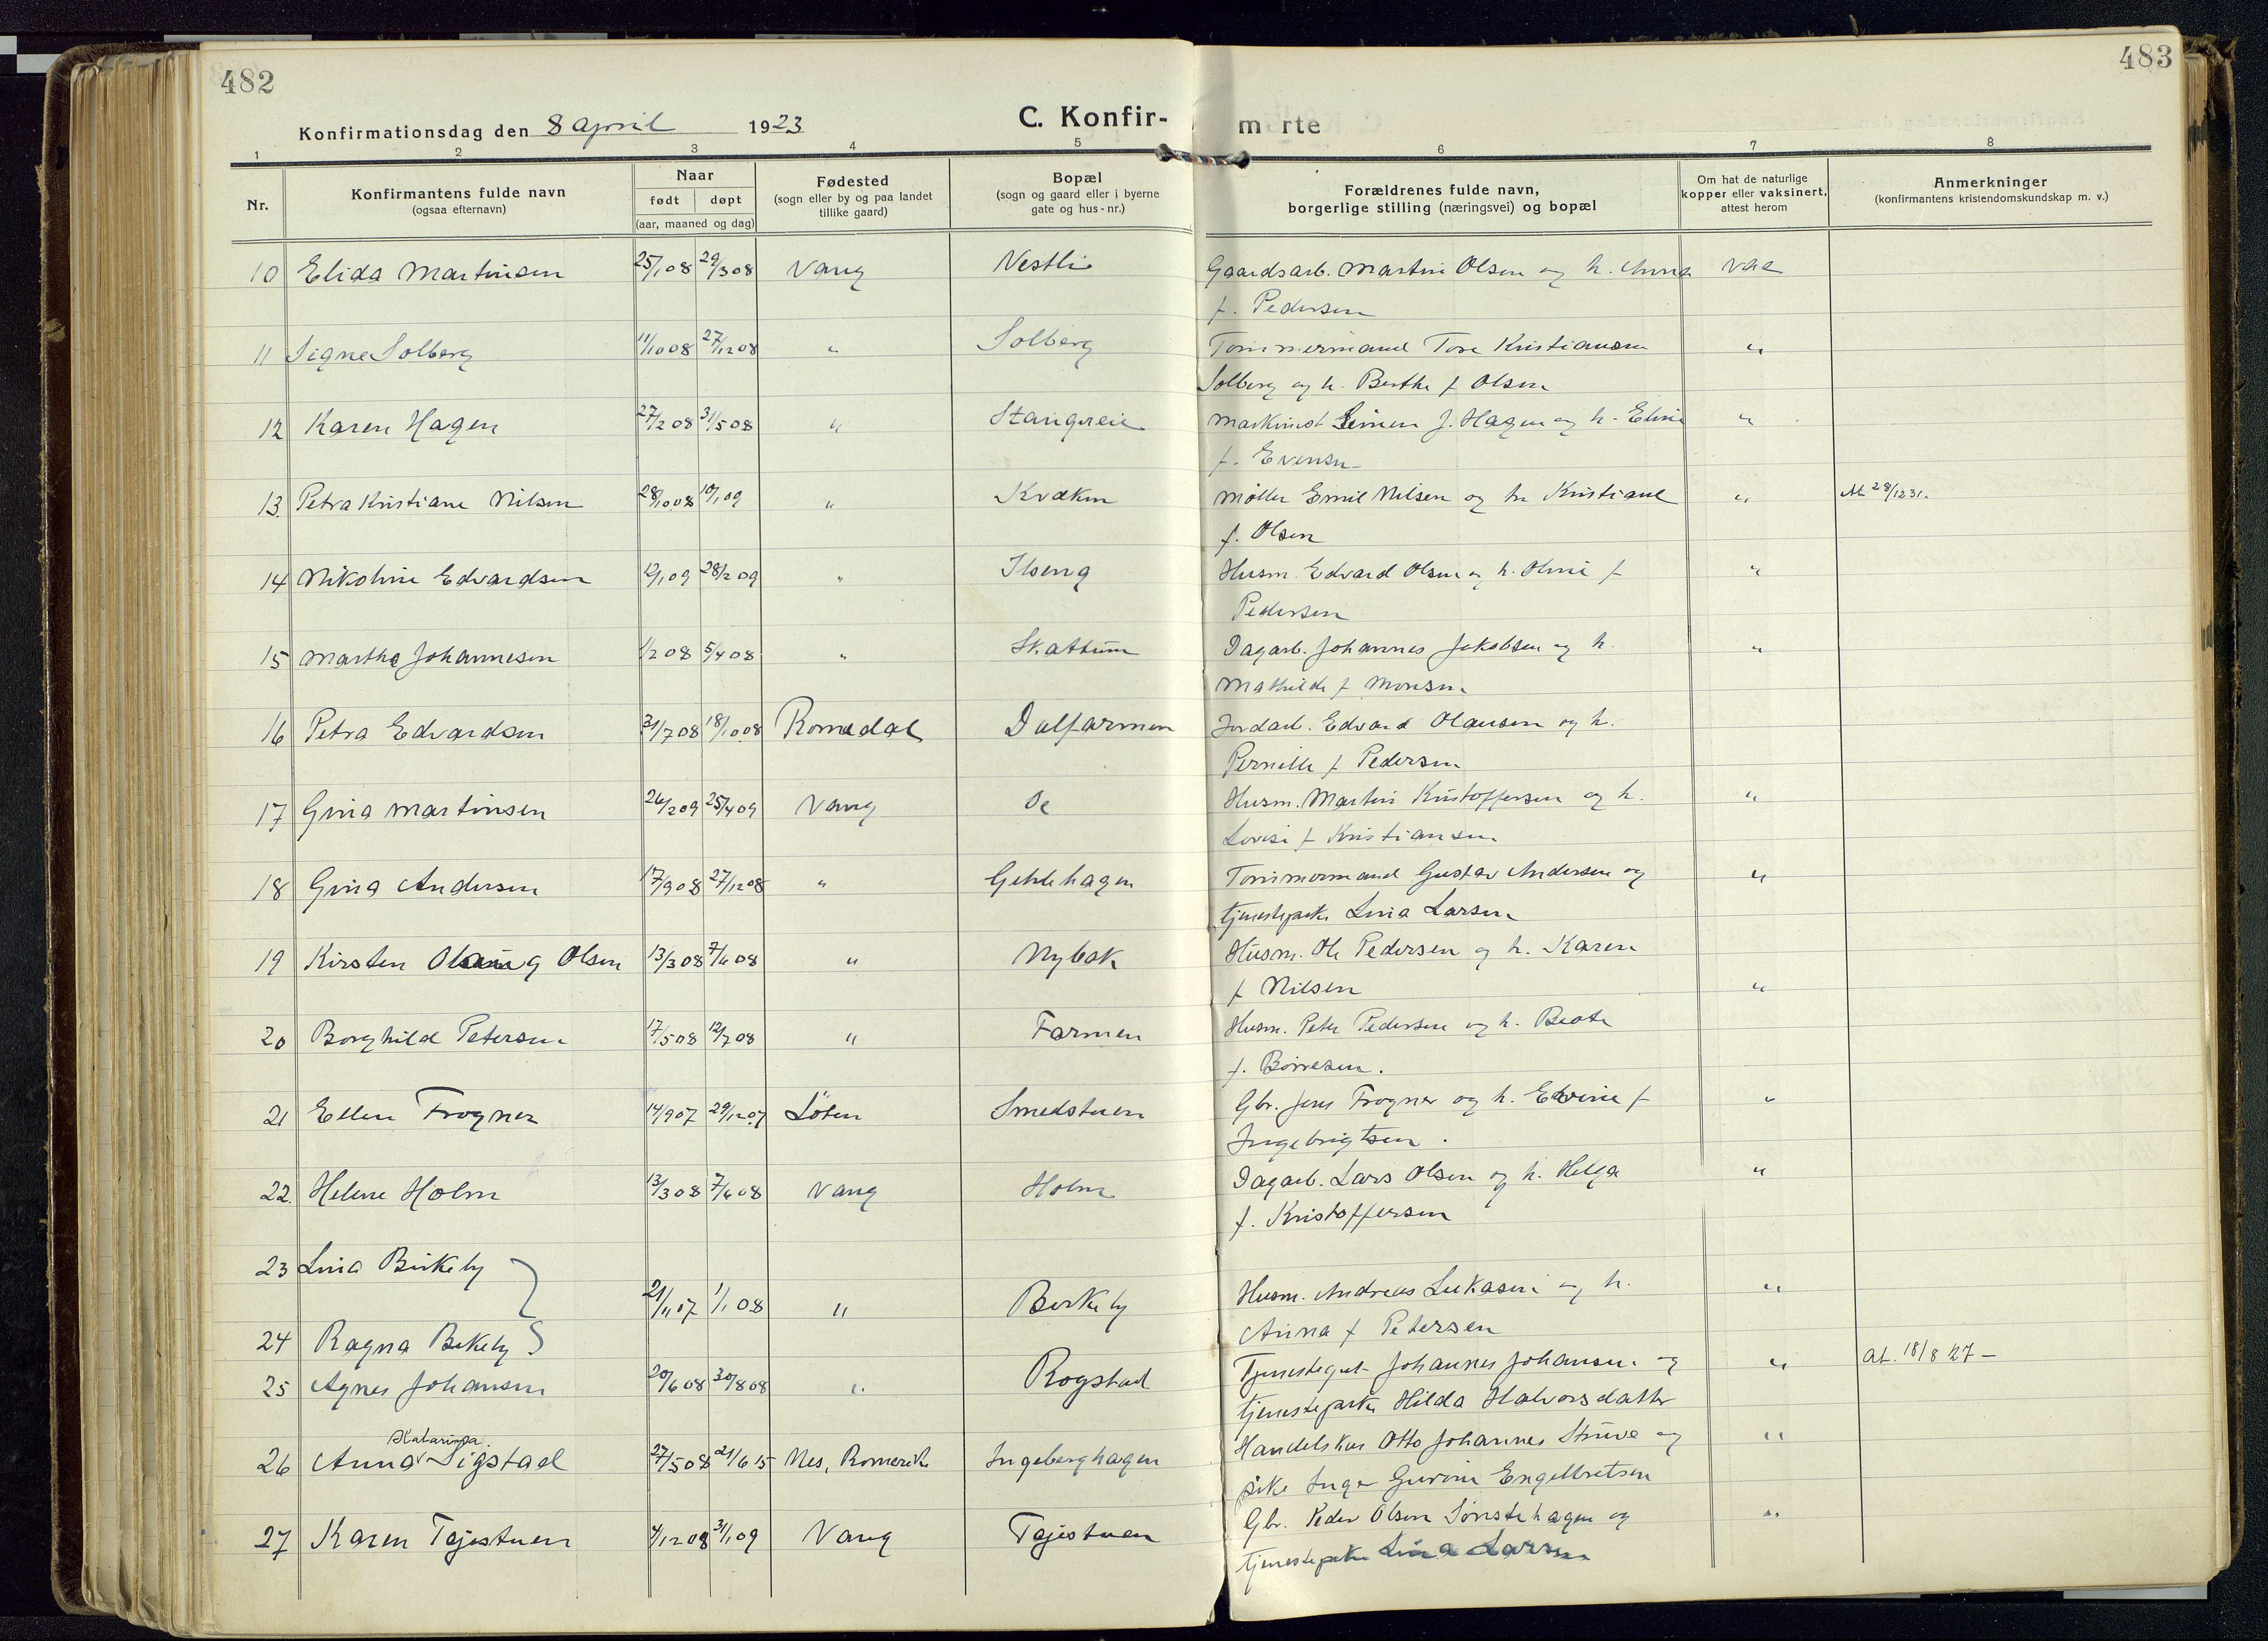 482
483
Konfirmationsdag den 8 april 1923
C. Konfir-
m rte
1 2 3 4 5 6 7 8
Nr.
Konfirmantens fulde navn
(ogsaa efternavn)
Naar
født døpt
(aar, maaned og dag)
Fødested
(sogn eller by og paa landet
tillike gaard)
Bopæl
(sogn og gaard eller i byerne
gate og hus-nr.)
Forældrenes fulde navn,
borgerlige stilling (næringsvei) og bopæl
Om hat de naturlige
kopper eller vaksinert,
attest herom
Anmerkninger
(konfirmantens kristendomskundskap m. v.)
10 Elida Martinsen 25/1 08 29/3 08 Vang Vestli Gaardsarb. Martin Olsen og h. Anna vac
f. Pedersen
11 Signe Solberg 11/10 08 27/12 08 " Solberg Tømmermand Tore Kristiansen "
Solberg og h. Berthe f Olsen
12 Karen Hagen 27/2 08 31/5 08 " Stangveie Maskinist Simen J. Hagen og h. Eline "
f. Evensen
13. Petra Kristiane Nilsen 28/10 08 10/1 09 " Kvæken Møller Emil Nilsen og h. Kristiane " At 28/12 31.
f. Olsen
14 Nikoline Edvardsen 12/1 09 28/2 09 " Ilseng Husm. Edvard Olsen og h. Oline f "
Pedersen
15 Marthe Johannesen 1/2 08 5/4 08 " Skattum Dagarb. Johannes Jakobsen og h. "
Mathilde f Monsen
16 Petra Edvardsen 31/7 08 18/10 08 Romedal Dalfarmen Jordarb. Edvard Olausen og h.
Pernille f Pedersen
17 Gina Martinsen 26/2 09 25/4 09 Vang Husm. Martin Kristoffersen og h. "
Lovise f Kristiansen
18 Gina Andersen 17/9 08 27/12 08 " Gehlehagen Tømmermand Gustav Andersen og "
tjenestepike Lina Larsen
19 Kirsten Olaug Olsen 13/3 08 7/6 08 " Nybak Husm. Ole Pedersen og h. Karen
f Nilsen "
20 Borghild Petersen 17/5 08 12/7 08 " Farmen Husm. Peter Pedersen og h. Beate
f. Børresen.
21 Ellen Frogner 14/9 07 29/12 07 Løten Smedstuen Gbr. Jens Frogner og h. Edvine f "
Ingebrigtsen.
22. Helene Holm 13/3 08 7/6 08 Vang Holm Dagarb. Lars Olsen og h. Helga "
f. Kristoffersen
23 Lina Birkeby
21/11 07 1/1 08 " Birkeby Husm. Andreas Lukasen og h. "
24 Ragna Birkeby Anna f Petersen
25 Agnes Johansen 20/6 08 30/8 08 " Rogstad Tjenestegut Johannes Johansen og " At. 18/8 27 –
tjenestepike Hilda Halvorsdatter
Katarina
26 Anna Sigstad 27/5 08 21/6 15 Nes, Romerike Ingeberghagen Handelskar Otto Johannes Struve og "
pike Inga Gurine Engelbretsen
27 Karen Tajestuen 4/12 08 31/1 09 Vang Tajestuen Gbr. Peder Olsen Sønstehagen og "
tjenestepike Lina Larsen